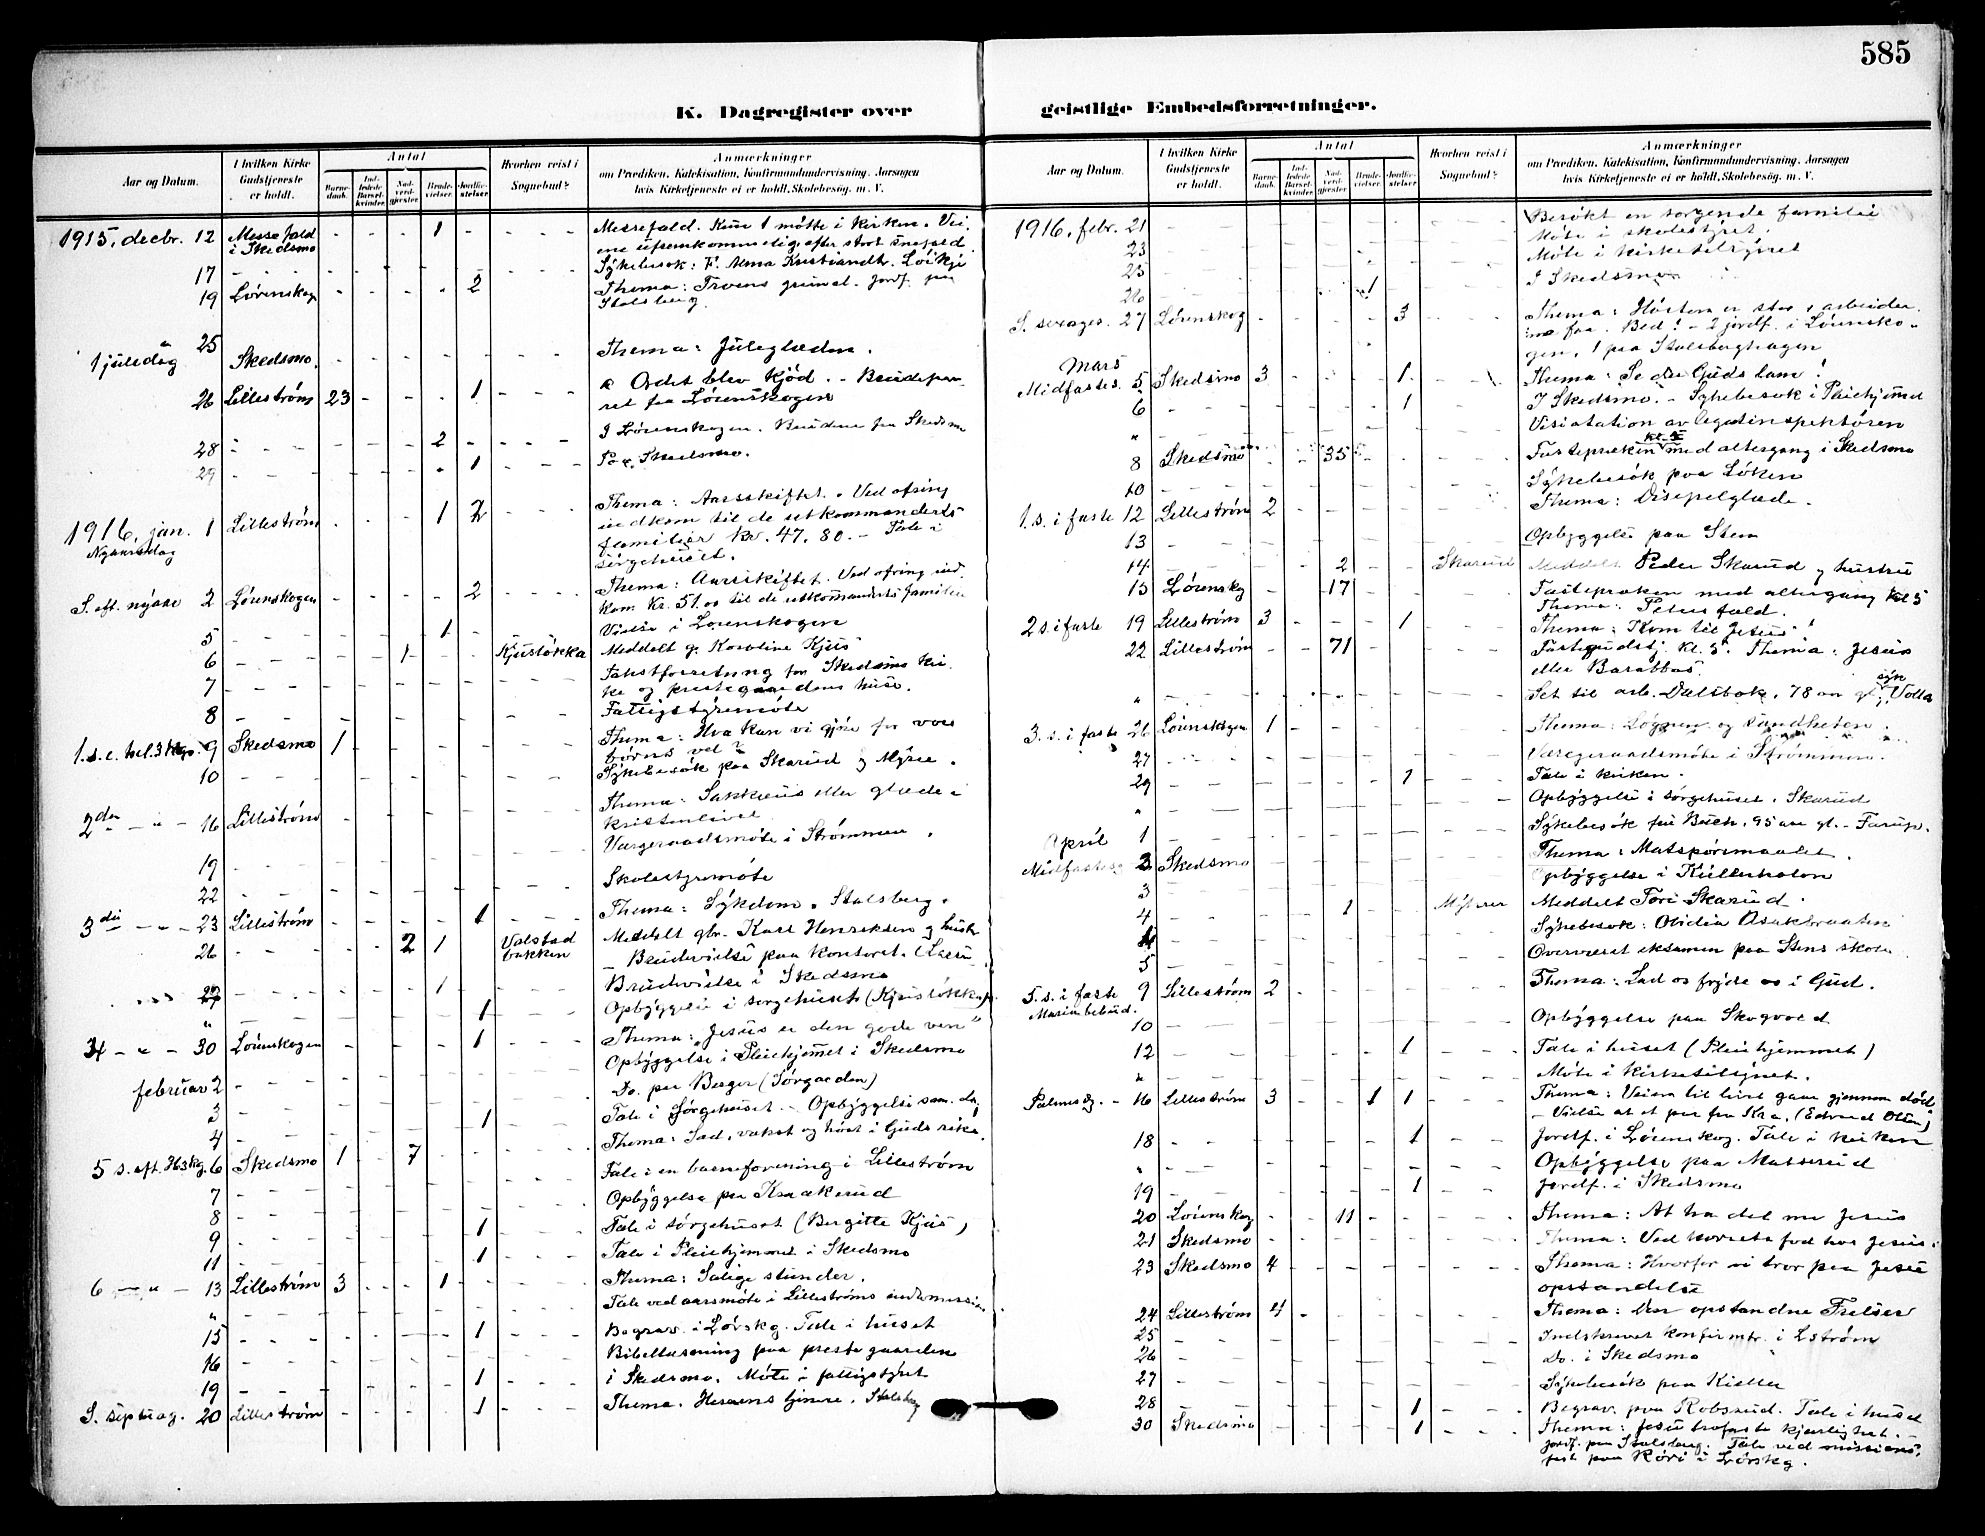 585
K. Dagregister over
Aar og Datum.
I hvilken Kirke Gudstjeneste er holdt.
Antal
Barnedaab.
Indledede Barselkvinder.
Nadverdgjester.
Brudevielser.
Jordfæstelser.
Hvorhen reist i Sognebud?
Anmærkninger
om Prædiken, Katekisation, Konfirmandundervisning, Aarsagen
hvis Kirketjeneste ei er holdt, Skolebesøg, m. V.
1915, decbr. 12 Messefald i Skedsmo - - - 1 - - - - Messefald. Kun 1 møtte i kirken. Vei-
ene ufremkommelig efter stort snefald.
17 - - - Sykebesøk: F. Alma Kristiandtr.
19 Lørenskog - - - - 2 - - - Thema: Troens grund. Jordf. paa
Stalsberg.
1 juledag 25 Skedsmo. - - - - - Thema: Juleglæden.
26 Lillestrøm 23 - - - 1 - - - Ordet blev Kjød. - Brudepar-
ret fra Lørenskogen
28 - - - 2 - - - - I Lørenskogen. Brudene fra Skedsmo
29 - - - - 1 - - - Skedsmo.
1916, jan. 1 Lillestrøm - - - 1 2 - - - Thema: Aarsskiftet. Ved ofring
Nyaarsdag
indkom til de utkommanderts
familier Kr. 47,80. - Tale i
sørgehuset.
S. eft. nyaar 2 Lørenskogen - - - - 2 - - - Thema: Aarsskiftet. Ved ofring ind-
kom Kr. 51.00 til de utkommanderts familier
5 - - - 1 - - Vielse i Lørenskogen
6 - - 1 - - Kjusløkka Meddelt g. Karoline Kjus
7 - - - - - Takstforretning for Skedsmo kir-
ke og prestegaardens huse.
8 - - - - - Fattigstyremøte
1. s. e. hel. 3 kgs. 9 Skedsmo 1 - - - - Thema: Hva kan vi gjøre for vore
børns vel?
10 - - - - - Sykebesøk paa Skarud og Myrer.
2den - " - 16 Lillestrøm - - - - - Thema: Sakkæus eller glæde i
kristenlivet
19 - - - - - Værgeraadsmøte i Strømmen.
22 - - - - - Skolestyremøte
3die - " - 23 Lillestrøm - - - - 1 - - Thema: Sykdom. Stalsberg.
26 - - 2 1 - Valstad bakken Meddelt gbr. Karl Henriksen og hustr
- Brudevielse paa kontoret.
27 - - - 1 - - - Brudevielse i Skedsmo
" - - - - 1 - - Opbyggelse i sørgehuset (Kjusløkka).
4 - " - 30 Lørenskogen - - - - 1 - - Thema: "Jesus er den gode ven"
Opbyggelse i Pleiehjemmet i Skedsmo
februar 2 - - - - - Do. paa Berger (Sørgaarden)
3 - - - - 1 - Tale i Sørgehuset - Opbyggelse sam. dag
4 - - - - -
5 s. eft. H3kg. 6 Skedsmo 1 - 7 - - Thema: Sæd, vekst og høst i Guds rike.
7 - - - - - Tale i en barneforening i Lillestrøm
8 - - - - - Opbyggelse paa Kraakerud
9 - - - - 1 - Tale i sørgehuset (Bergitte Kjus)
11 - - - - 1 - Tale i Pleiehjemmet i Skedsmo
6 - " - 13 Lillestrøm 3 - - 1 - Thema: Salige stunder.
" - - - - - Tale ved aarsmøte i Lillestrøms indremission
15 - - - - 1 - Begrav. i Lørskg. Tale i huset
16 - - - - - Bibellæsning paa prestegaarden
19 - - - - 1 - i Skedsmo. Møte i fattigstyret
S. septuag. 20 Lillestrøm - - - - 1 - Thema. Herrens tjenere. Stalsberg
geistlige Embedsforretninger.
Aar og Datum.
I hvilken Kirke Gudstjeneste er holdt.
Antal
Barnedaab.
Indledede Barselkvinder.
Nadverdgjester.
Brudevielser.
Jordfæstelser.
Hvorhen reist i Sognebud?
Anmærkninger
om Prædiken, Katekisation, Konfirmandundervisning, Aarsagen
hvis Kirketjeneste ei er holdt, Skolebesøg, m. V.
1916, febr. 21 - - - - - Besøkt en sørgende familie
23 - - - - - Møte i skolestyret.
25 - - - - - Møte i kirketilsynet
26 - - - 1 - I Skedsmo
S. sexages. 27 Lørenskog - - - - 3 - - - Thema: Høsten er stor, arbeider
ne faa. Bed! - 2 jordf. i Lørensko-
gen, 1 paa Stalsberghagen
Mars
Midfastes. 5 Skedsmo 3 - - - 1 - - Thema: Se det Guds lam!
6 - - - - 1 - - I Skedsmo. - Sykebesøk i Pleiehjemmet
" - - - - - Visiatation av legatinspektøren
8 Skedsmo - - 35 - - Fastepræken kl. 5 med altergang i Skedsmo
10 - - - - - Sykebesøk paa Løken
1. s. i faste 12 Lillestrøm 2 - - - - Thema: Disipelglæde.
13 - - - - - Opbyggelse paa Sten
14 - - 2 - - Skarud Meddelt Peder Skarud og hustru
15 Lørenskg - - 17 - - Fastepræken med altergang kl 5
Thema: Peters fald.
2 s. i faste 19 Lillestrøm 3 - - - 1 - Thema: Kom til Jesus!
22 Lillestrøm - - 71 - - Fastegudstj. kl. 5. Thema: Jesus
eller Barabbas
" - - - - - Set til arb. Dalsbak, 78 aar gl., syk Volla
3. s. i faste 26 Lørenskogen 1 - - - - Thema: Løgnen og sandheten.
27 - - - - - Værgeraadsmøte i Strømmen.
29 - - - - 1 - Tale i kirken.
" - - - - - Opbyggelse i sørgehuset. Skarud
April 1 - - - - - Sykebesøk fru Buch, 95 aar gl. - Farup.
Midfastesg 2 Skedsmo - - - - - Thema: Matspørsmaalet.
3 - - - - - Opbyggelse i Kullerholen
4 - - 1 - - Myhrer Meddelt Tori Skarud.
4 - - - - - Sykebesøk: Olidia Asakbraaten
5 - - - - - Overværet eksamen paa Stens skole
5. s. i faste 9 Lillestrøm 2 - - - - Thema: Lad os fryde os i Gud.
Mariæ bebud.
10 - - - - - Opbyggelse paa Skogvold
12 - - - - 1 - Tale i huset (Pleiehjemmet)
" - - - - - Møte i kirketilsynet.
Palmesøg. - 16 Lillestrøm 3 - - 1 1 - Thema: Veien til livet gaar gjennem død
- Vielse at et par fra Kra. (Edvard Olsen)
18 - - - - 1 - Jordf. i Lørenskog. Tale i kirken
" - - - - - Opbyggelse paa Mutserud
19 - - - - 1 - Jordf. i Skedsmo
20 Lørenskog - - 11 - - Thema: At ha del me Jesus
21 Skedsmo - - - - - Thema: Ved korsets fod hos Jesus.
23 Skedsmo 4 - - - - Thema: Hvorfor vi tror paa Jesu
opstandelse
24 Lillestrøm 4 - - - - Thema: Den opstandne Frelser
25 - - - - - Indskrevet konfirmtr. i Lstrøm
26 - - - - - Do. i Skedsmo
27 - - - - - Sykebesøk paa Kjeller
28 - - - - 1 - Begrav. paa Robsrud. Tale i huset
30 Skedsmo - - - - 1 - Thema: Jesu trofaste kjærlighet. -
Jordf. paa Stalsberg. Tale ved missions-
fest paa Røri i Lørskg.